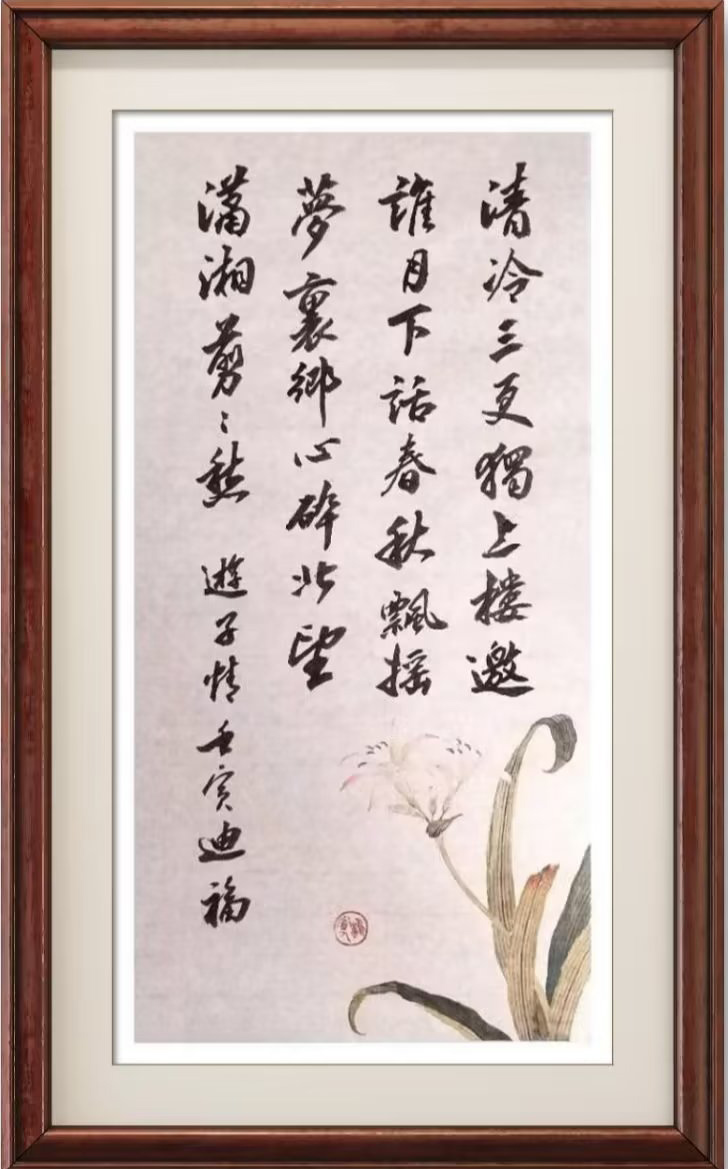 清泠三更獨上樓邀
誰月下話春秋飄搖
夢裏鄉心碎北望
瀟湘剪〻愁 遊子情 壬寅迪福